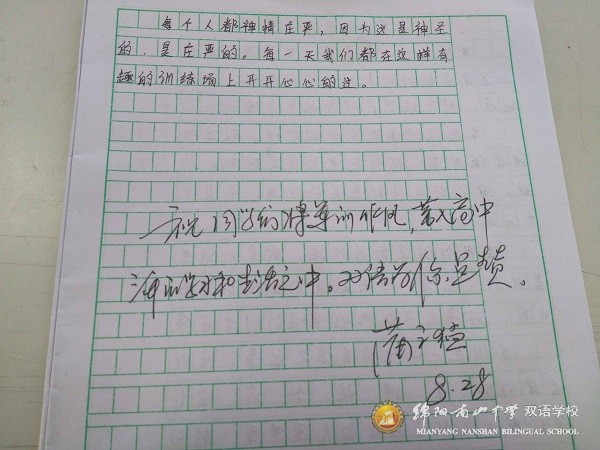 每个人都神情庄严，因为这是神圣
的，是庄严的。每一天我们都在这样有
趣的训练场上开开心心的过。
祝同学们将军训作风，带入高中
学习和生活之中。双语为你点赞。
8.28
绵阳南山中学 双语学校
MIANYANG NANSHAN BILINGUAL SCHOOL